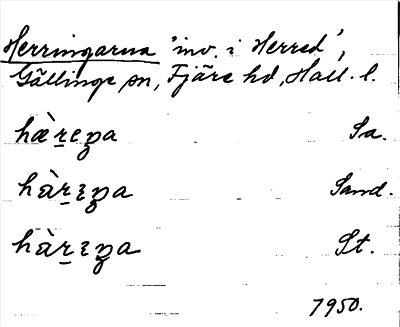 Herringarna 'inv. i Herred',
Gällinge sn, Fjäre hd, Hall. l.
hæ̀r̠eŋa Sa.
hàr̠ɛŋa Sand.
hàr̠ɛŋa St.
1950.